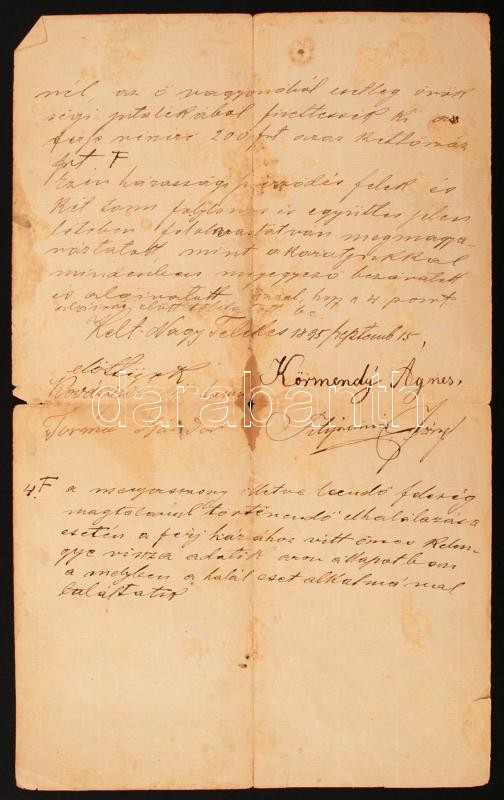 nél, az ő vagyonából esetleg örök
ségi jutalékából fizettessék ki a
férj részére 200 frt azaz kettőszáz
frt F
Ezen házassági szerződés felek és
két tanu folytonos és együttes jelen
létében felolvastatván megmagya
ráztatott mint akaratjukkal
mindenben megegyező bezáratott
és aláíratott azzal, hogy a 4 pont
aláírás előtt be.
Kelt Nagy Telekes 1895 september 15,
előttünk
Körmendy Ágnes,
Torma Sándor
József
4. F a menyasszony illetve leendő feleség
magtalanul történendő elhalálozása
esetén a férj házához vitt összes kelen-
gye vissza adatik azon állapotban
a melyben a halál eset alkalmával
találtatik
darabanth